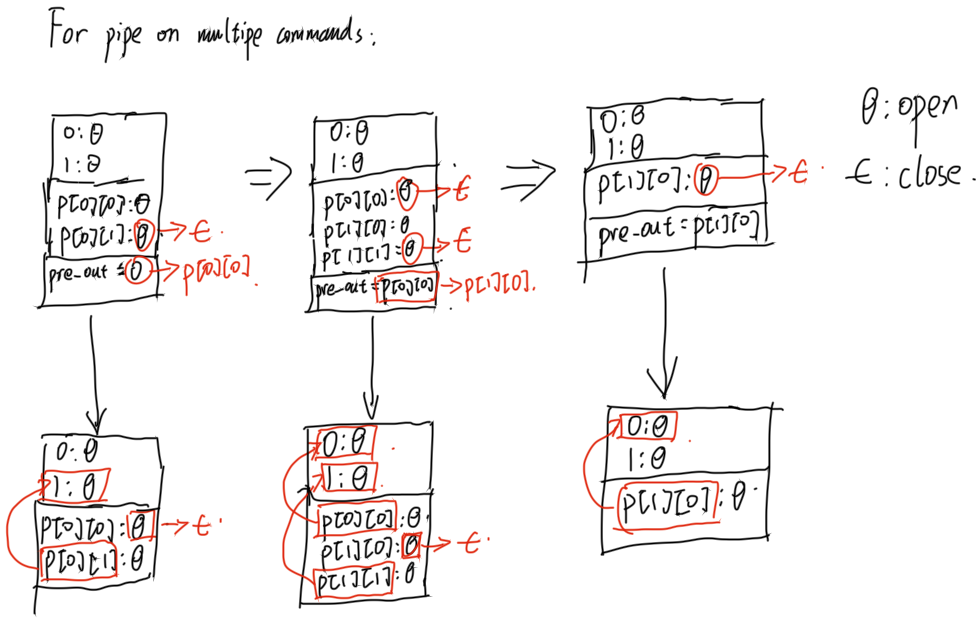 For pipe on multipe commands:
0:θ
1:θ
p[0][0]:θ
p[0][1]:θ → ϵ.
pre-out = 0 → p[0][0].
⇒
0:θ
1:θ
p[0][0]:θ → ϵ
p[1][0]:θ
p[1][1]:θ → ϵ
pre-out = p[0][0] → p[1][0].
⇒
0:θ
1:θ
p[1][0]:θ → ϵ.
pre-out = p[1][0]
θ:open
ϵ:close.
0:θ
1:θ
p[0][0]:θ → ϵ.
p[0][1]:θ
0:θ
1:θ
p[0][0]:θ
p[1][0]:θ → ϵ.
p[1][1]:θ
0:θ
1:θ
p[1][0]:θ